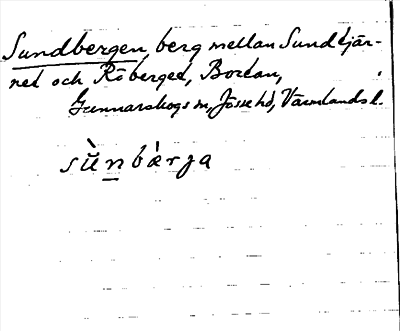 Sundbergen, berg mellan Sundtjär-
net och Röberget, Bordan,
Gunnarskogs sn, Jösse hd, Värmlands l.
sùnbàrja